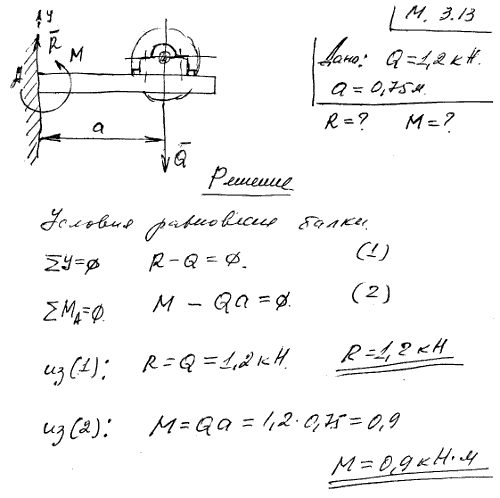 М. 3.13
Дано: Q=1,2 кН.
a=0,75м.
R=? M=?
y
R̅
M
A
a
Q̅
Решение
Условия равновесия балки.
ΣY=0 R-Q=0. (1)
ΣM_A=0. M - Qa=0. (2)
из(1): R=Q=1,2кН. R=1,2 кН
из(2): M=Qa=1,2·0,75=0,9
M=0,9 кН·м